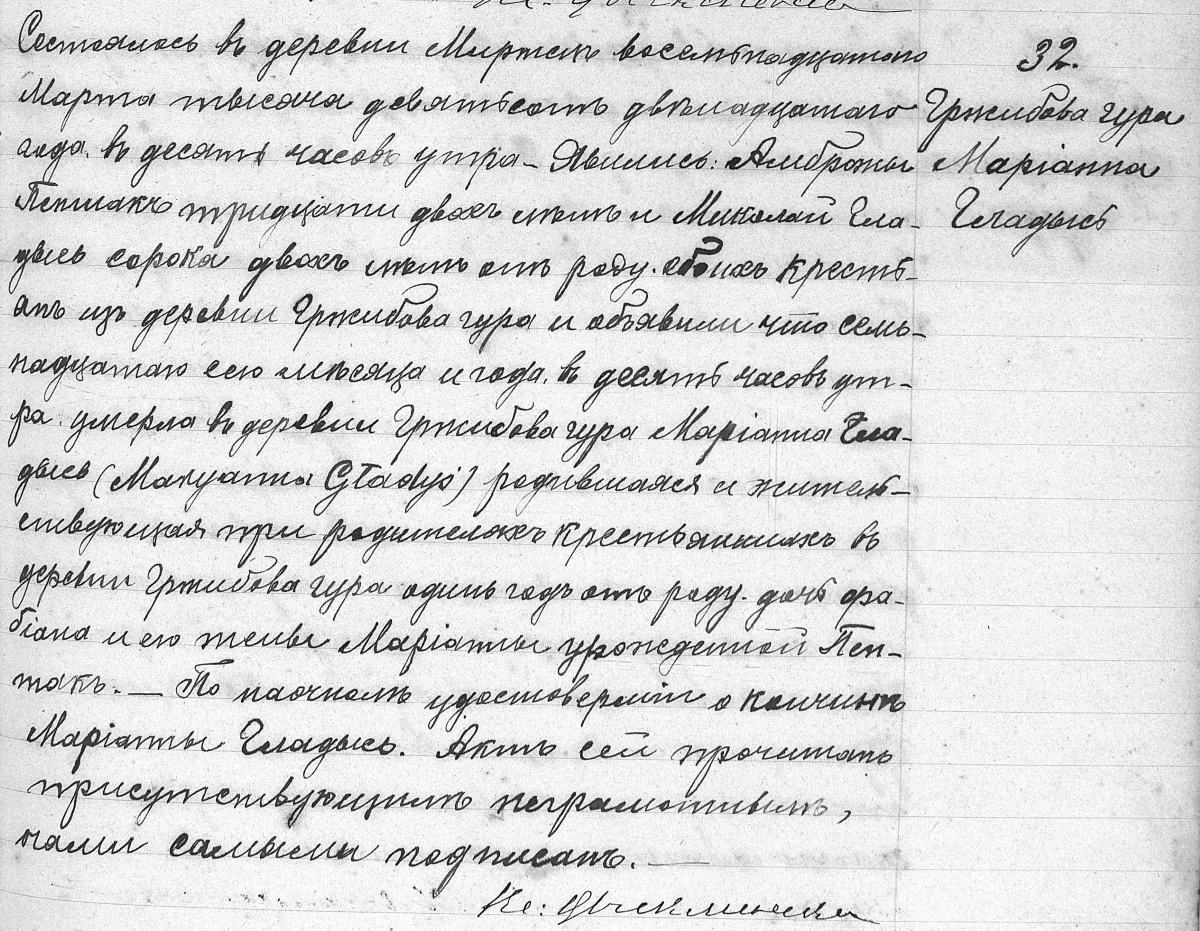 Состоялось въ деревни Миржецъ восемьнадцатаго
32.
Марта тысяча девятьсотъ двѣнадцатаго
Гржибова гура
года, въ десять часовъ утра — Явились: Амброжы
Маріанна
тридцати двохъ лѣтъ и Миколай Гла-
Гладысь
дысь сорока двохъ лѣтъ отъ роду. обоихъ кресть-
янъ изъ деревни Гржибова гура и объявили что семь-
надцатаго сего мѣсяца и года, въ десять часовъ ут-
ра. умерла въ деревни Гржибова гура Маріанна Гла-
дысь (Maryanna Gładyś) родившаяся и житель-
ствующая при родителяхъ крестьянкихъ въ
деревни Гржибова гура одинъ годъ отъ роду. дочь Фа-
біана и его жены Маріанны урожденной
По наочномъ удостоверміи о кончинѣ
Маріанны Гладысь. Актъ сей прочитанъ
присутствующимъ неграмотнымъ,
нами самыми подписанъ. —
Кс: